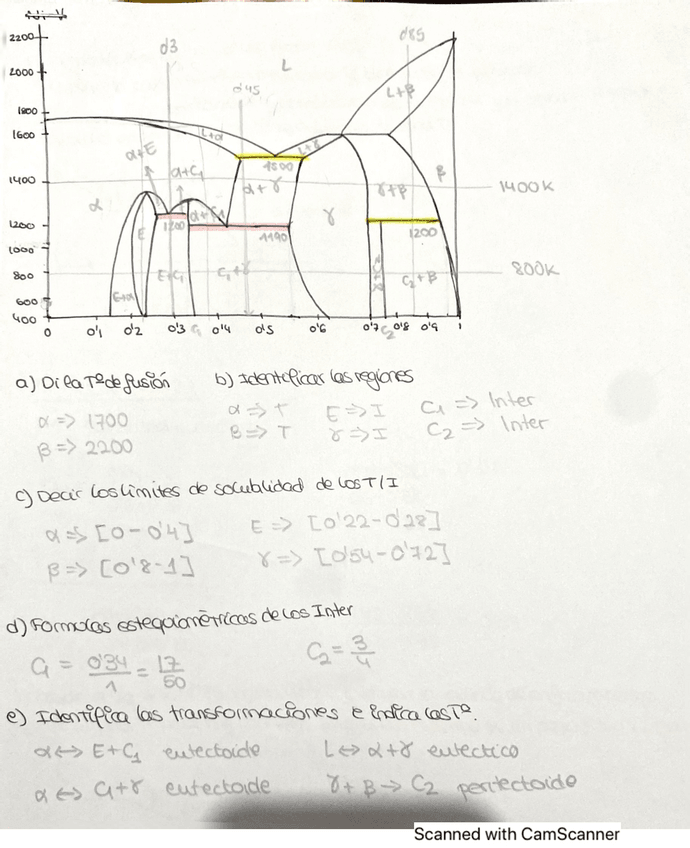 2200
d3
d85
2000
L
d45
L+β
1800
1600
L+α
L+γ
α+E
1500
α+C₁
1400
α+γ
γ+β
β
1400K
α
γ
1200
1200
α+C₁
1190
1200
E
1000
800
E+C₁
C₁+γ
C₂+β
800K
600
E+α
400
0 0'1 0'2 0'3 C₁ 0'4 0'5 0'6 0'7 C₂ 0'8 0'9 1
a) Di la Tº de fusión
b) Identificar las regiones
α => 1700
α => T E => I C₁ => Inter
β => 2200
β => T γ => I C₂ => Inter
c) Decir los límites de solubilidad de los T/I
α => [0-0'4] E => [0'22-0'28]
β => [0'8-1] γ => [0'54-0'72]
d) Formulas estequiométricas de los Inter
C₁ = 0'34/1 = 17/50 C₂ = 3/4
e) Identifica las transformaciones e indica las Tº.
α <-> E+C₁ eutectoide L <-> α+γ eutectico
α <-> C₁+γ eutectoide γ+β -> C₂ peritectoide
Scanned with CamScanner